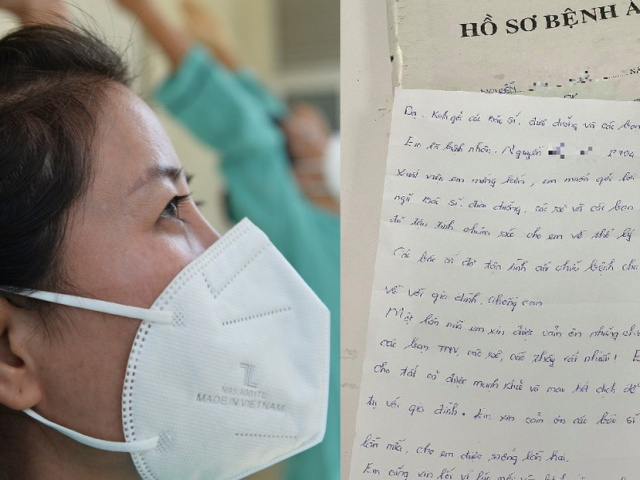 MADE IN VIETNAM
HỒ SƠ BỆNH Á
Dạ. Kính gửi các Bác sĩ, điều dưỡng và các bạn
Em là bệnh nhân. Nguyễn P704
Xuất viện em mừng lắm, em muốn gửi lời
ngũ Bác sĩ điều dưỡng, các sơ và các bạn
đã tận tình chăm sóc cho em về thể lý
Các bác sĩ đã tận tình cứu chữa bệnh cho
về với gia đình, chồng con
Một lần nữa em xin được cảm ơn những
các bạn TNV, các sơ, các thầy rất nhiều! E
cho tất cả được mạnh khoẻ và mau hết dịch để
tụ với gia đình. Em xin cảm ơn các bác sĩ
lần nữa, cho em được sống lần hai.
Em cũng xin lỗi vì